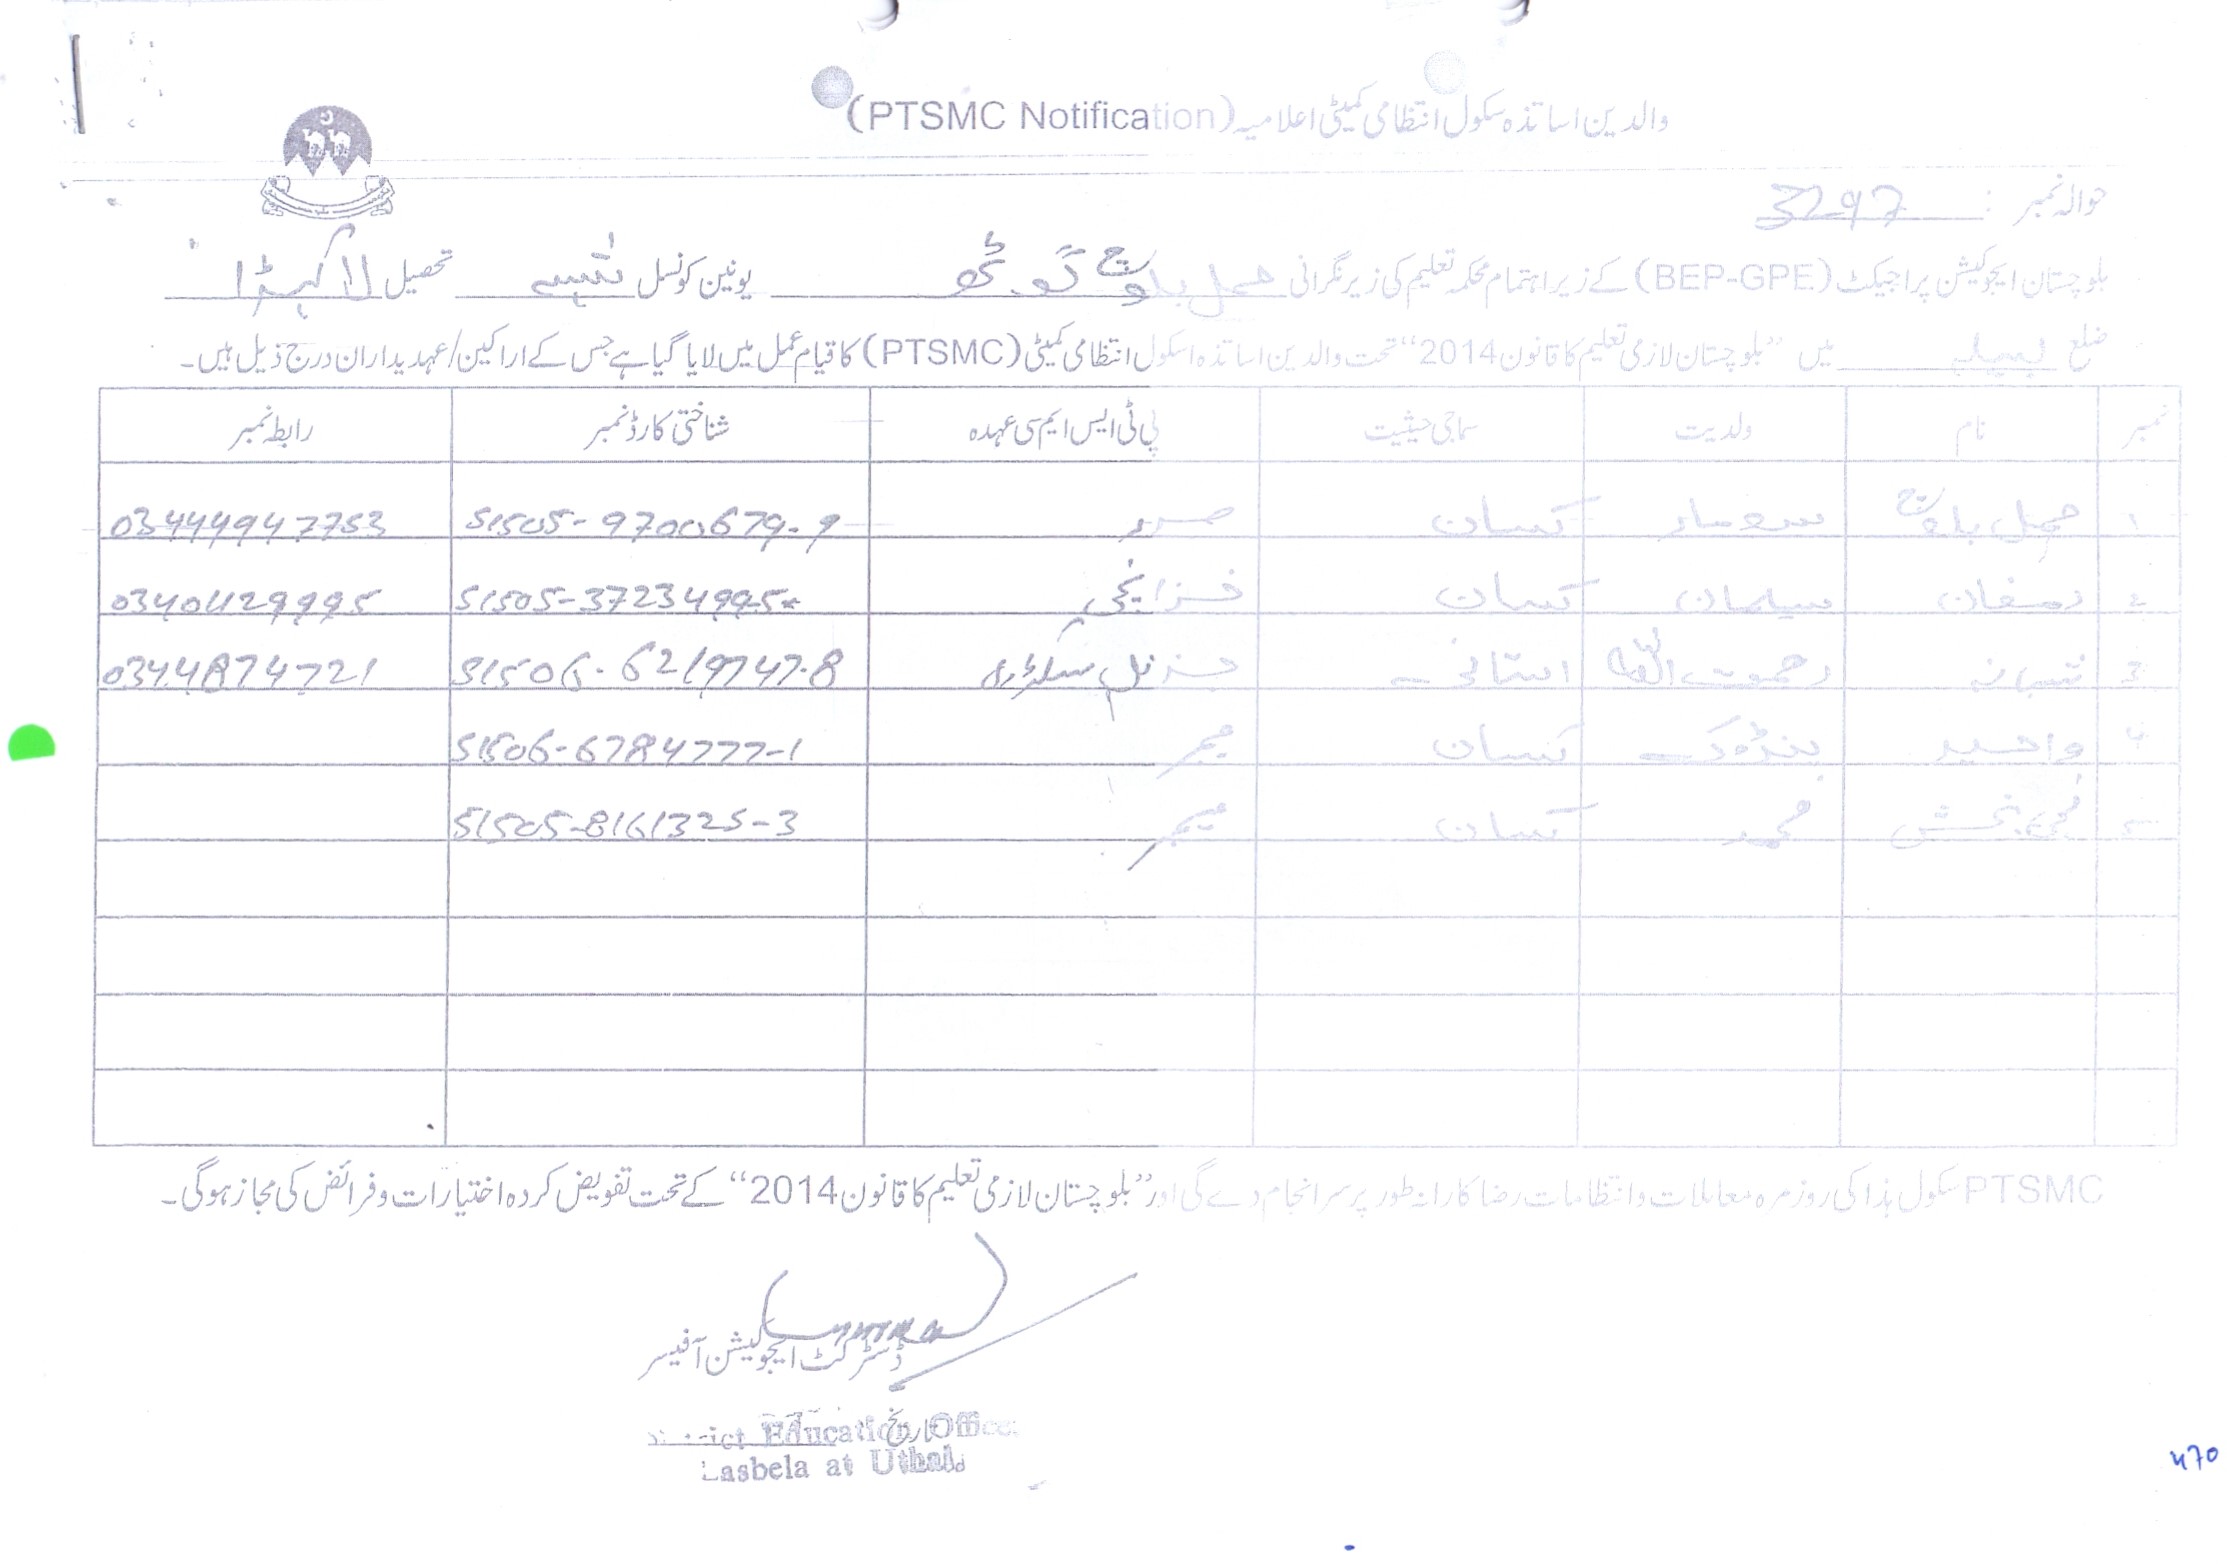 والدین اساتذہ سکول انتظامی کمیٹی اعلامیہ (PTSMC Notification)
حوالہ نمبر : 3297
بلوچستان ایجوکیشن پراجیکٹ (BEP-GPE) کے زیر اہتمام محکمہ تعلیم کی زیر نگرانی حمل بلوچ گوٹھ یونین کونسل تحصیل لاکھڑا
ضلع لسبیلہ میں ”بلوچستان لازمی تعلیم کا قانون 2014“ تحت والدین اساتذہ اسکول انتظامی کمیٹی (PTSMC) کا قیام عمل میں لایا گیا ہے جس کے اراکین/عہدیداران درج ذیل ہیں۔
نمبر نام ولدیت سماجی حیثیت پی ٹی ایس ایم سی عہدہ شناختی کارڈ نمبر رابطہ نمبر
۱ حمل بلوچ کسان صدر 51505-9700679-9 03444947753
۲ رمضان سلیمان کسان خزانچی 51505-37234995 03401129995
۳ شبانہ رحمت اللہ استانی جنرل سیکرٹری 51506-6219747-8 0344874721
۴ واحد کسان ممبر 51506-6784777-1
۵ بخش محمد کسان ممبر 51505-8161325-3
PTSMC سکول ہذا کی روزمرہ معاملات و انتظامات رضا کارانہ طور پر سرانجام دے گی اور ”بلوچستان لازمی تعلیم کا قانون 2014“ کے تحت تفویض کردہ اختیارات و فرائض کی مجاز ہوگی۔
ڈسٹرکٹ ایجوکیشن آفیسر
تاریخ
District Education Officer
Lasbela at Uthal.
470